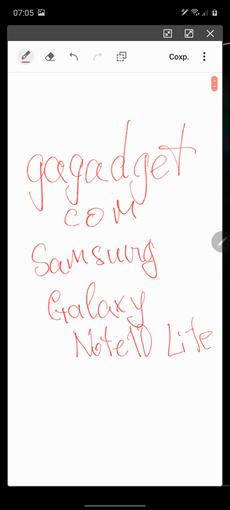 07:05
Сохр.
gagadget
com
Samsung
Galaxy
Note10 Lite